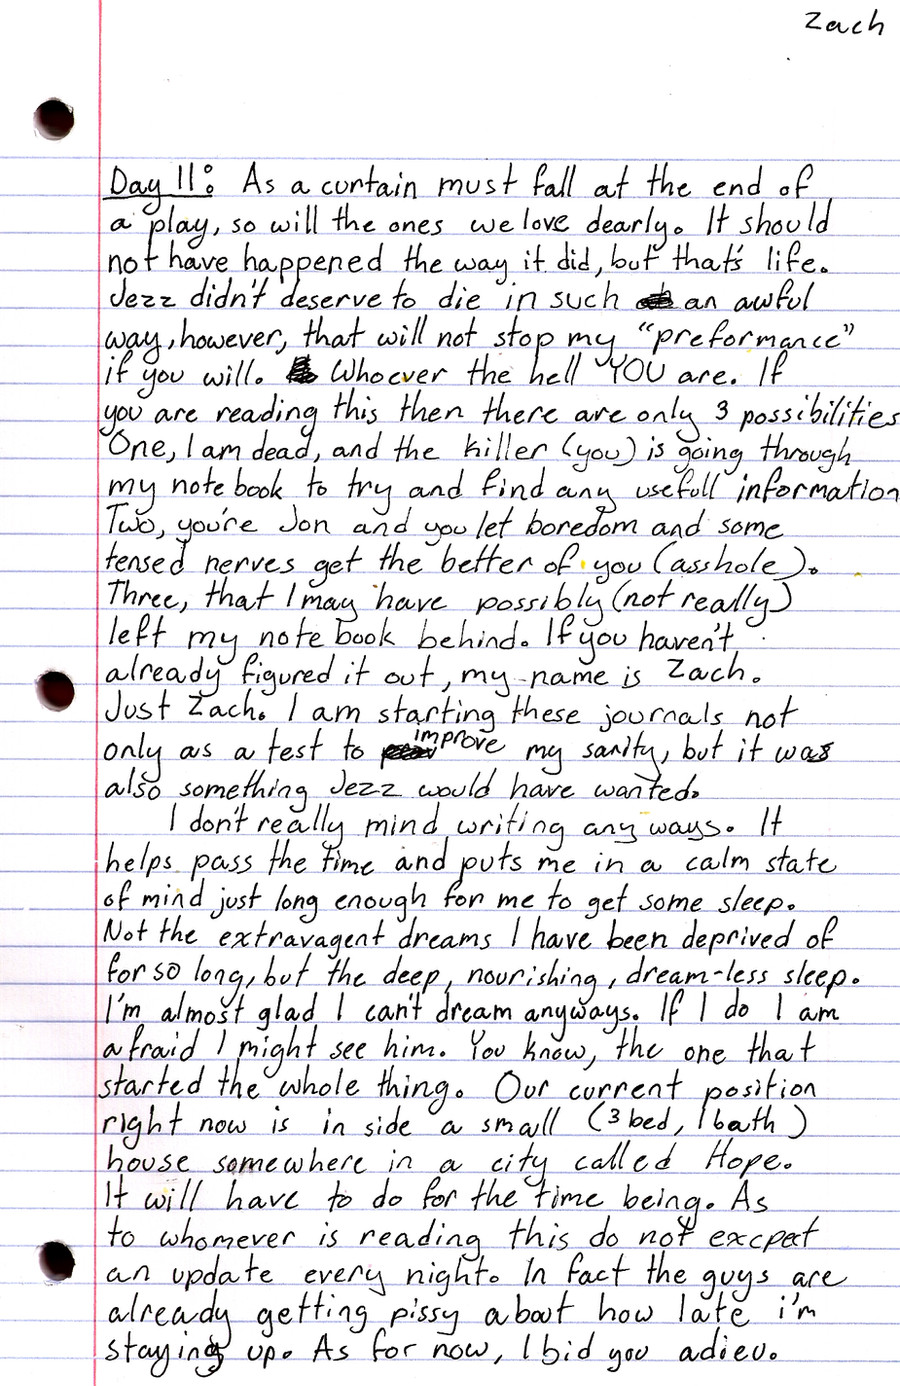 Zach
Day 11: As a curtain must fall at the end of
a play, so will the ones we love dearly. It should
not have happened the way it did, but that's life.
Jezz didn't deserve to die in such an awful
way, however, that will not stop my "preformance"
if you will. Whoever the hell YOU are. If
you are reading this then there are only 3 possibilities
One, I am dead, and the killer (you) is going through
my note book to try and find any usefull information
Two, you're Jon and you let boredom and some
tensed nerves get the better of you (asshole).
Three, that I may have possibly (not really)
left my note book behind. If you haven't
already figured it out, my name is Zach.
Just Zach. I am starting these journals not
only as a test to improve my sanity, but it was
also something Jezz would have wanted.
I don't really mind writing any ways. It
helps pass the time and puts me in a calm state
of mind just long enough for me to get some sleep.
Not the extravagent dreams I have been deprived of
for so long, but the deep, nourishing, dream-less sleep.
I'm almost glad I can't dream anyways. If I do I am
afraid I might see him. You know, the one that
started the whole thing. Our current position
right now is in side a small (3 bed, 1 bath)
house somewhere in a city called Hope.
It will have to do for the time being. As
to whomever is reading this do not excpect
an update every night. In fact the guys are
already getting pissy about how late i'm
staying up. As for now, I bid you adieu.